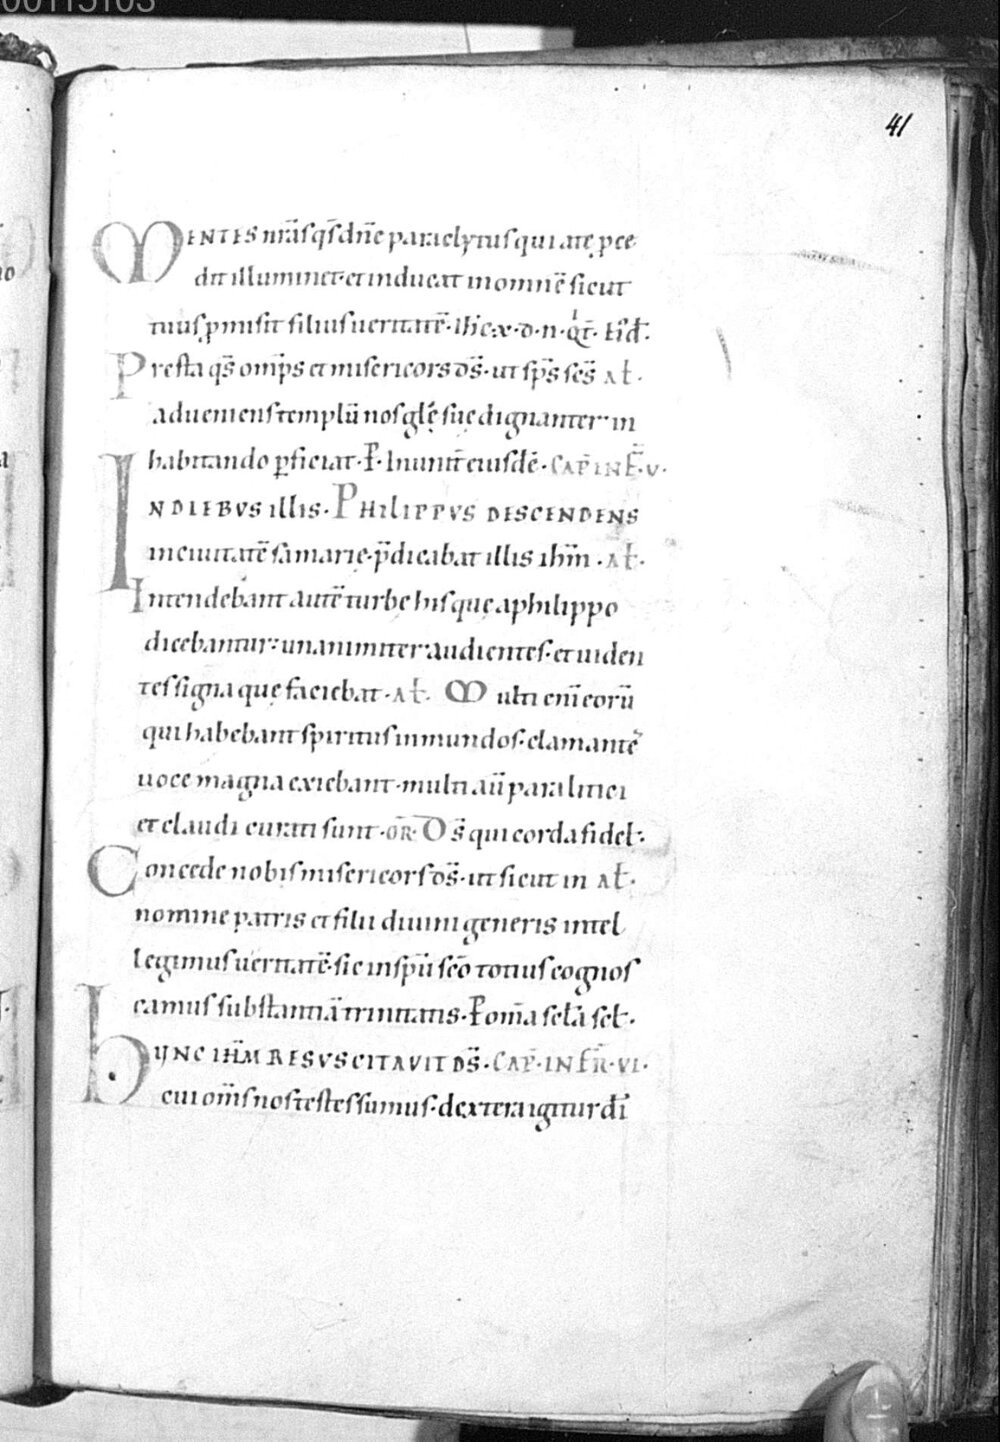 00115103
41
MENTES nr̄as qs̄ dn̄e paraclytus qui a te p̱ce
dit illuminet· et inducat in omnē sicut
tuus p̱misit filius ueritatē· ihc· x· d· n· Qi t̄· Eisd̄·
Presta qs̄ omp̄s et misericors ds̄· ut sp̄s scs̄ Al·
adueniens templū nos glę̄ suę dignanter in
habitando ꝑficiat· P· In unit̄ eiusdē· CAP̄ IN F̄· V·
IN DIEBVS illis· PHILIPPVS DESCENDENS
in ciuitatē samarię· p̄dicabat illis ihm̄· Al·
Intendebant autē turbę his quę a philippo
dicebantur· unanimiter audientes· et uiden
tes signa quę faciebat· Al· Multi eni̅ eorū
qui habebant spiritus inmundos· clamantē
uoce magna exiebant· multi aū paralitici
et claudi curati sunt· OR̄· Ds̄ qui corda fidel·
Concede nobis misericors ds̄· ut sicut in Al·
nomine patris et filii diuini generis intel
legimus ueritatē· sic in spū scō totius cognos
camus substantiā trinitatis· P om̄a scl̄a scl·
hVNC IHM̄ RESVSCITAVIT DS̄· CAP̄· IN FR̄· VI·
cui om̄s nos testes sumus· dextera igitur dī